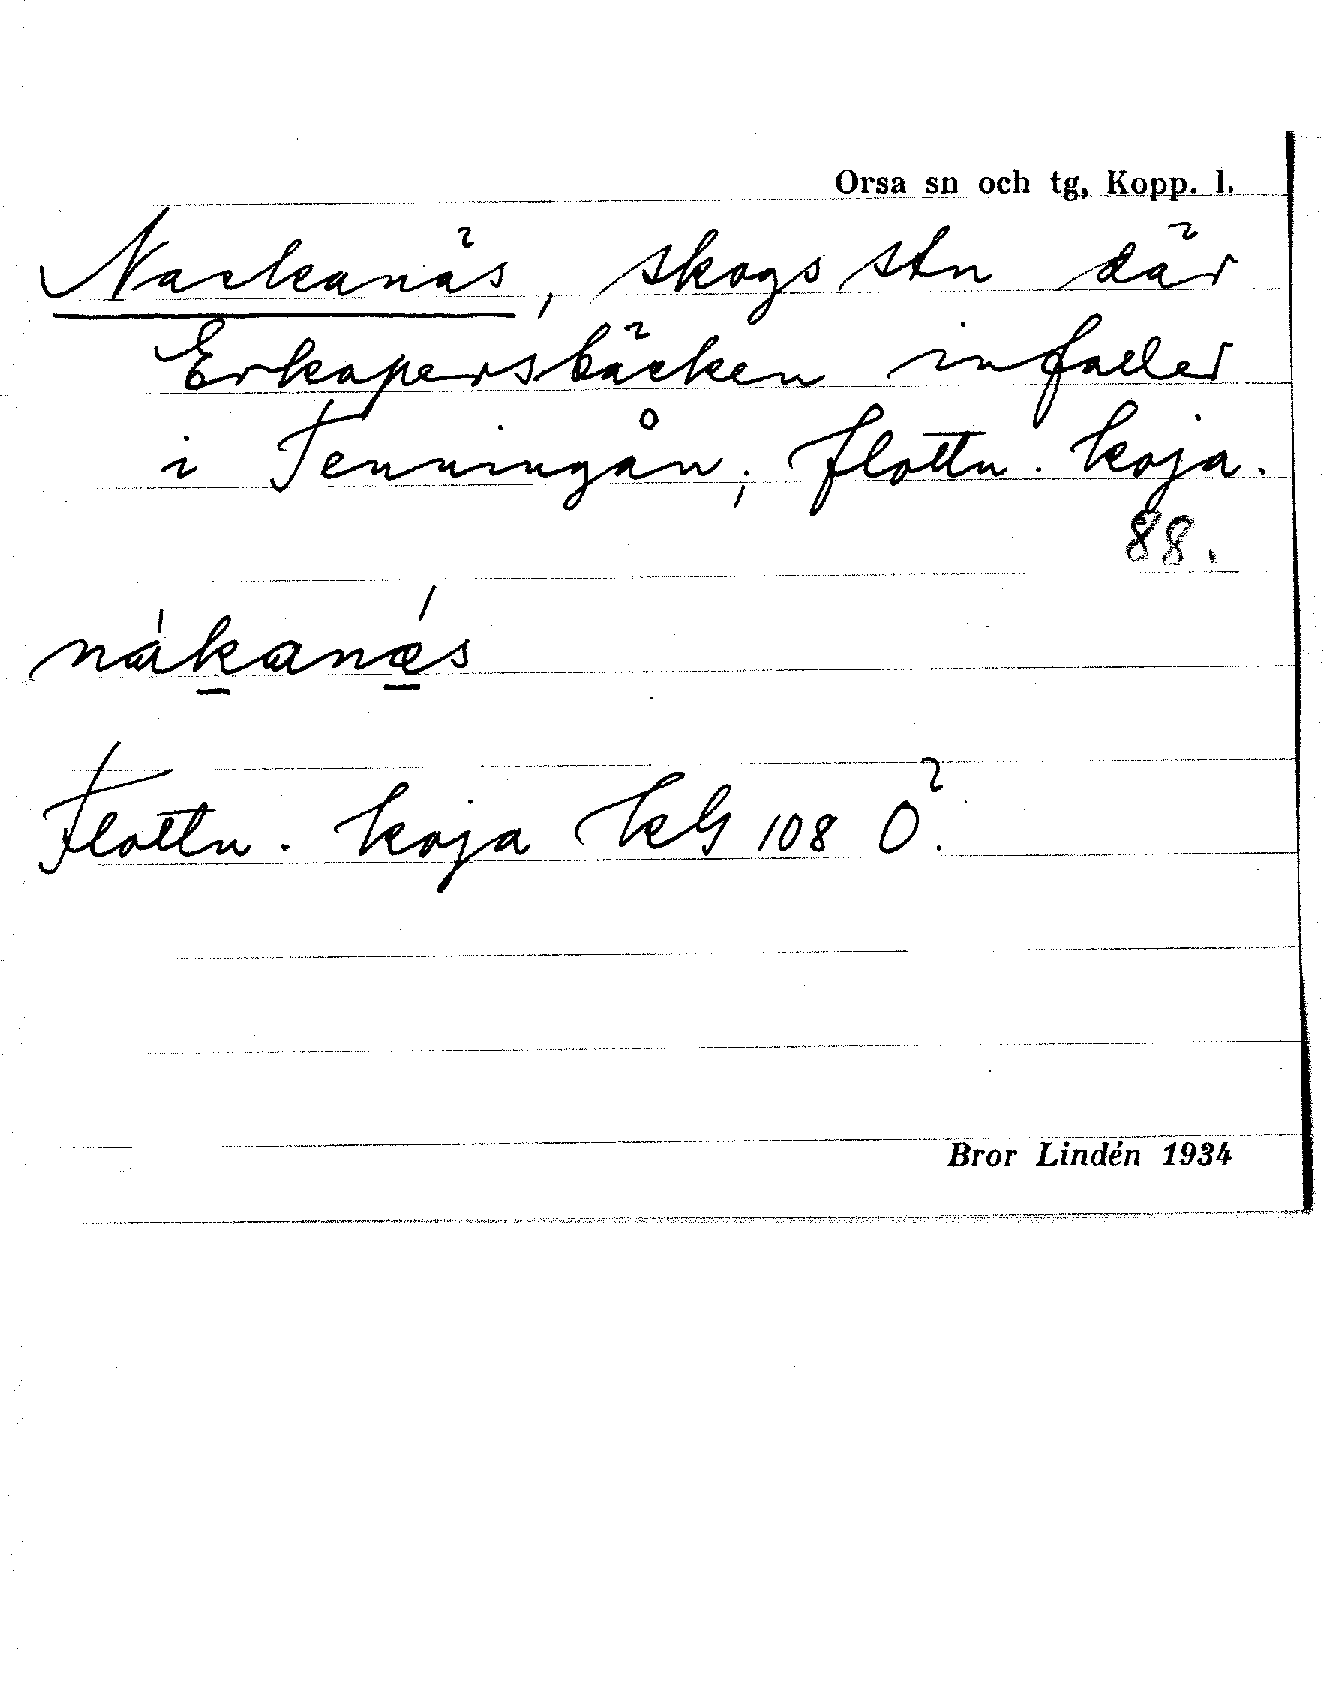 Orsa sn och tg, Kopp. l.
Nackanäs, skogsstn där
Erkapersbäcken infaller
i Tenningån; flottn. koja.
88.
nákanǽs
Flottn. koja kG 108 Ö.
Bror Lindén 1934